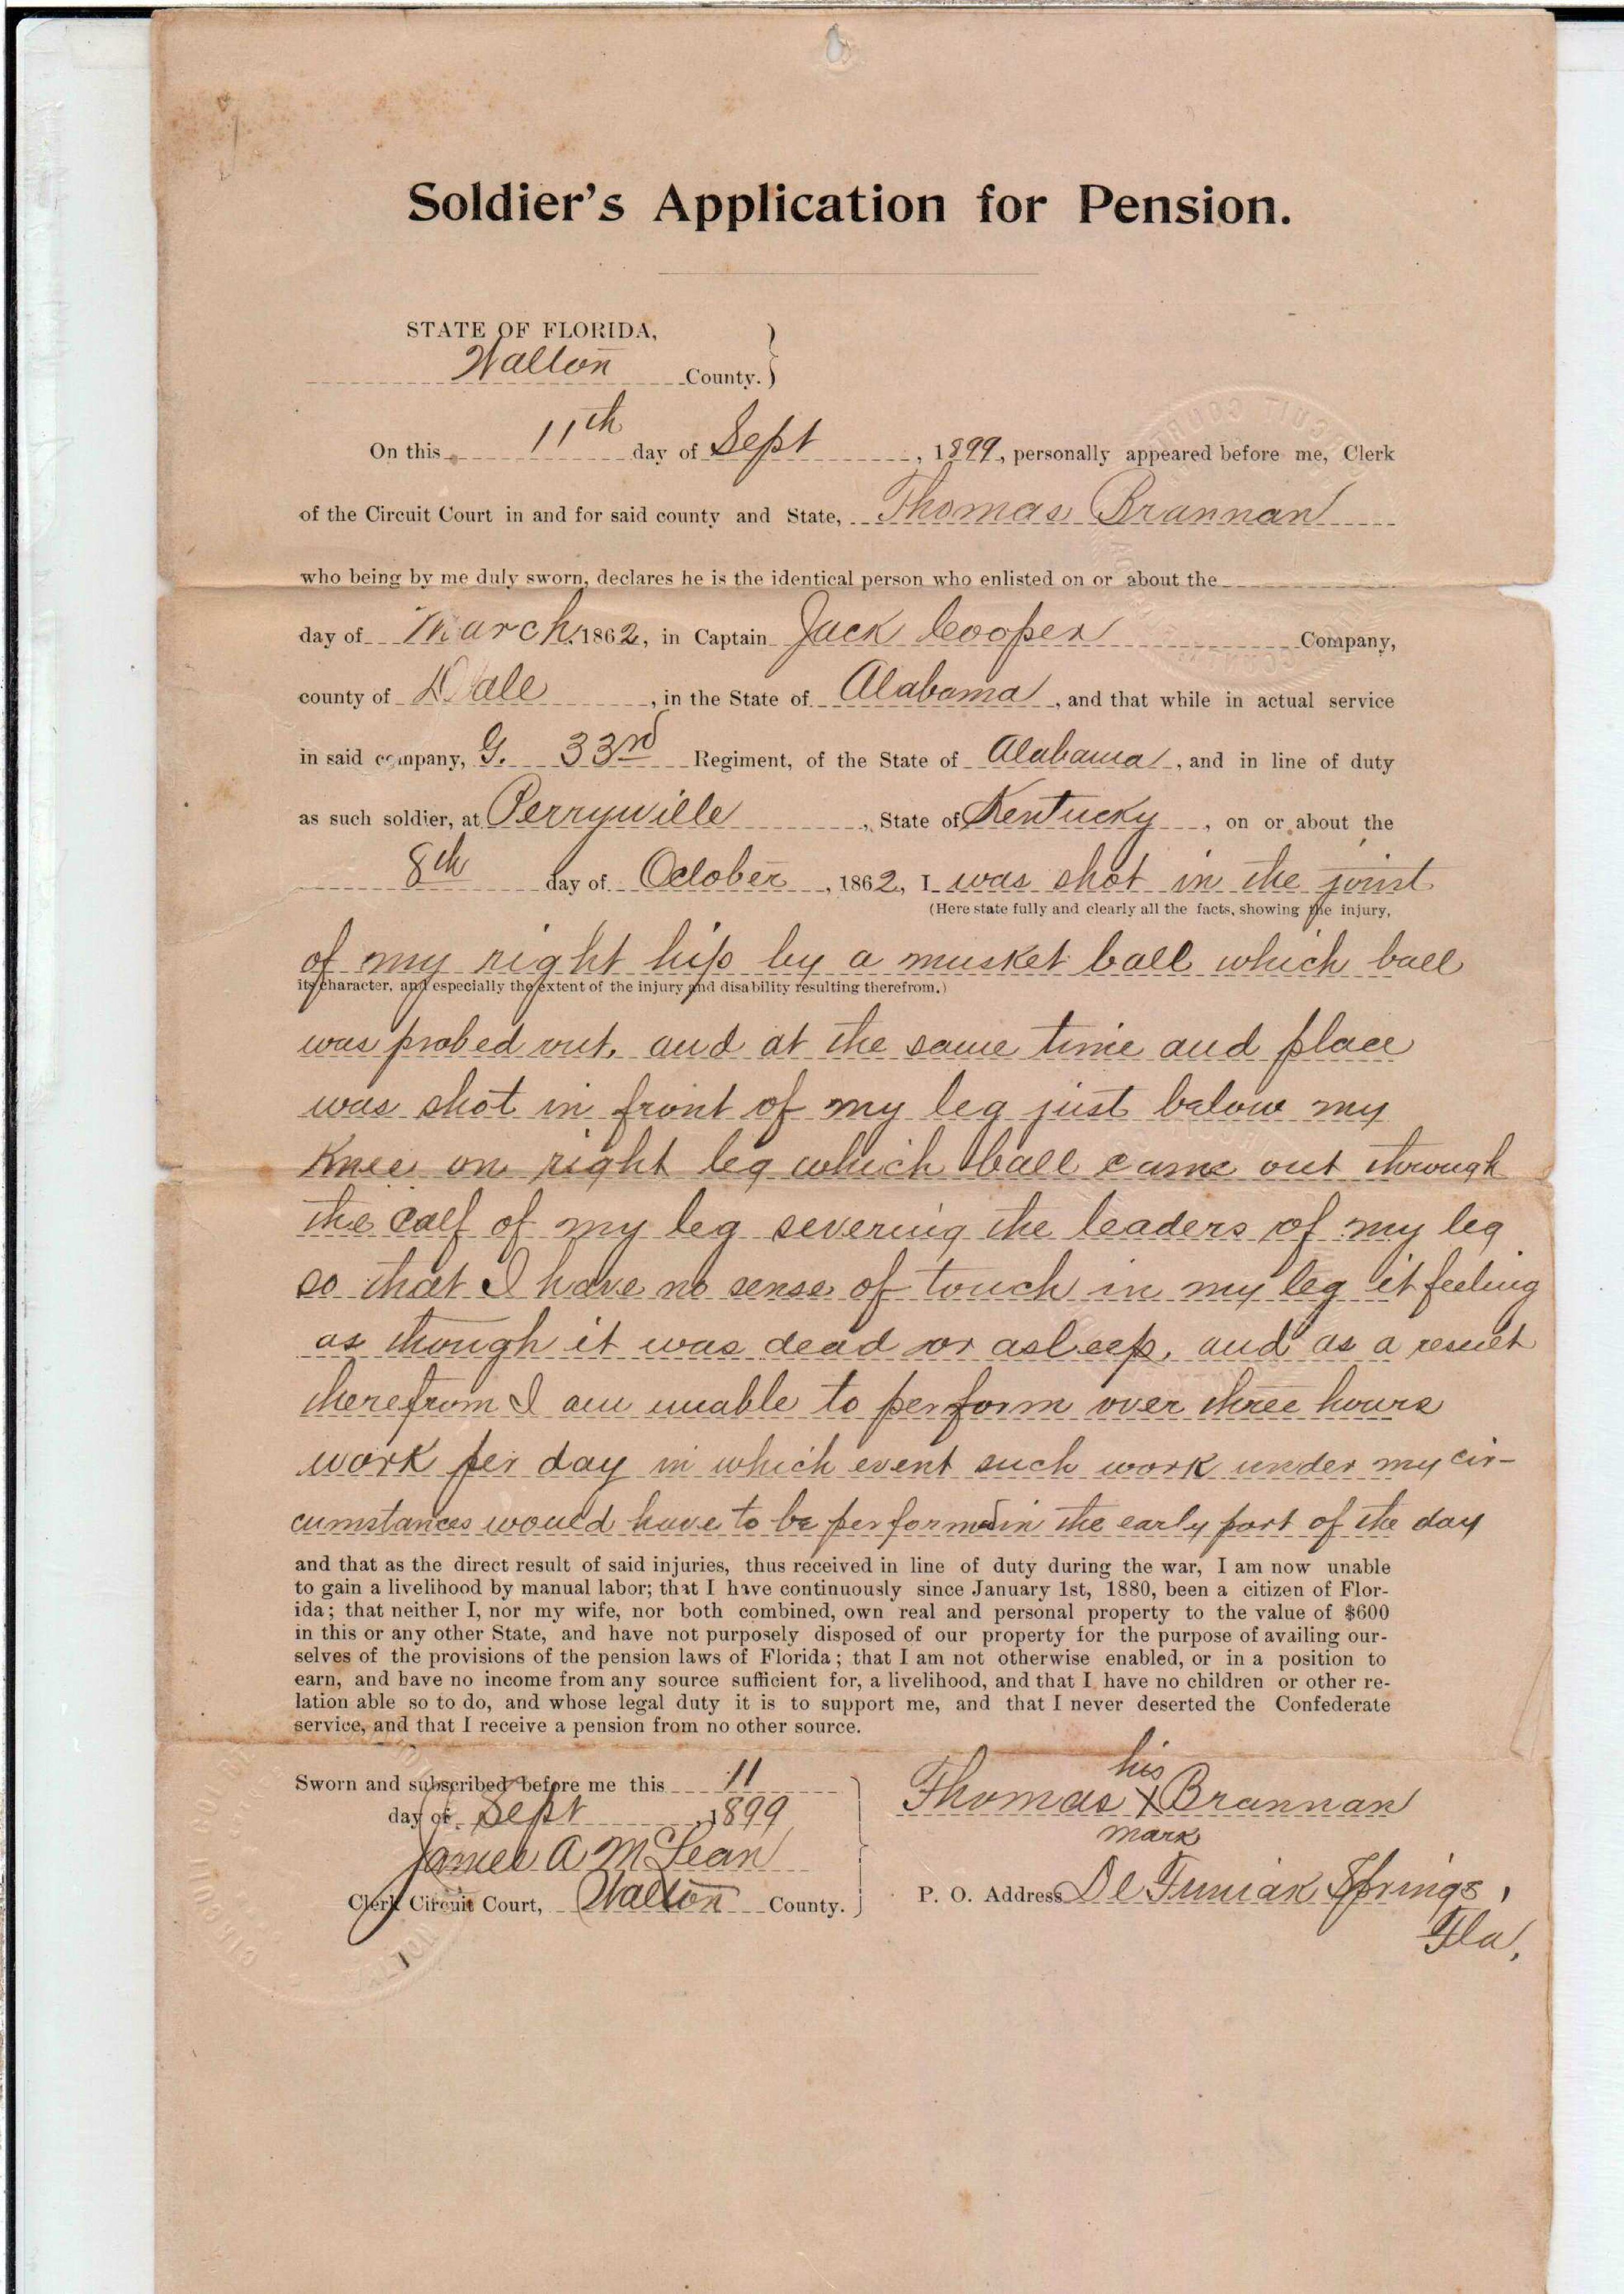 Soldier's Application for Pension.
STATE OF FLORIDA,
Walton County.
On this 11th day of Sept, 1899, personally appeared before me, Clerk
of the Circuit Court in and for said county and State, Thomas Brannan
who being by me duly sworn, declares he is the identical person who enlisted on or about the
day of March 1862, in Captain Jack Cooper Company,
county of Dale, in the State of Alabama, and that while in actual service
in said company, G. 33rd Regiment, of the State of Alabama, and in line of duty
as such soldier, at Perryville, State of Kentucky, on or about the
8th day of October, 1862, I was shot in the joint
(Here state fully and clearly all the facts, showing the injury,
of my right hip by a musket ball which ball
its character, and especially the extent of the injury and disability resulting therefrom.)
was probed out, and at the same time and place
was shot in front of my leg just below my
Knee on right leg which ball came out through
the calf of my leg severing the leaders of my leg
so that I have no sense of touch in my leg it feeling
as though it was dead or asleep, and as a result
therefrom I am unable to perform over three hours
work per day in which event such work under my cir-
cumstances would have to be performed in the early part of the day
and that as the direct result of said injuries, thus received in line of duty during the war, I am now unable
to gain a livelihood by manual labor; that I have continuously since January 1st, 1880, been a citizen of Flor-
ida; that neither I, nor my wife, nor both combined, own real and personal property to the value of $600
in this or any other State, and have not purposely disposed of our property for the purpose of availing our-
selves of the provisions of the pension laws of Florida; that I am not otherwise enabled, or in a position to
earn, and have no income from any source sufficient for, a livelihood, and that I have no children or other re-
lation able so to do, and whose legal duty it is to support me, and that I never deserted the Confederate
service, and that I receive a pension from no other source.
Sworn and subscribed before me this 11
day of Sept, 1899
James A McLean
Clerk Circuit Court, Walton County.
his
Thomas X Brannan
mark
P. O. Address De Funiak Springs,
Fla.